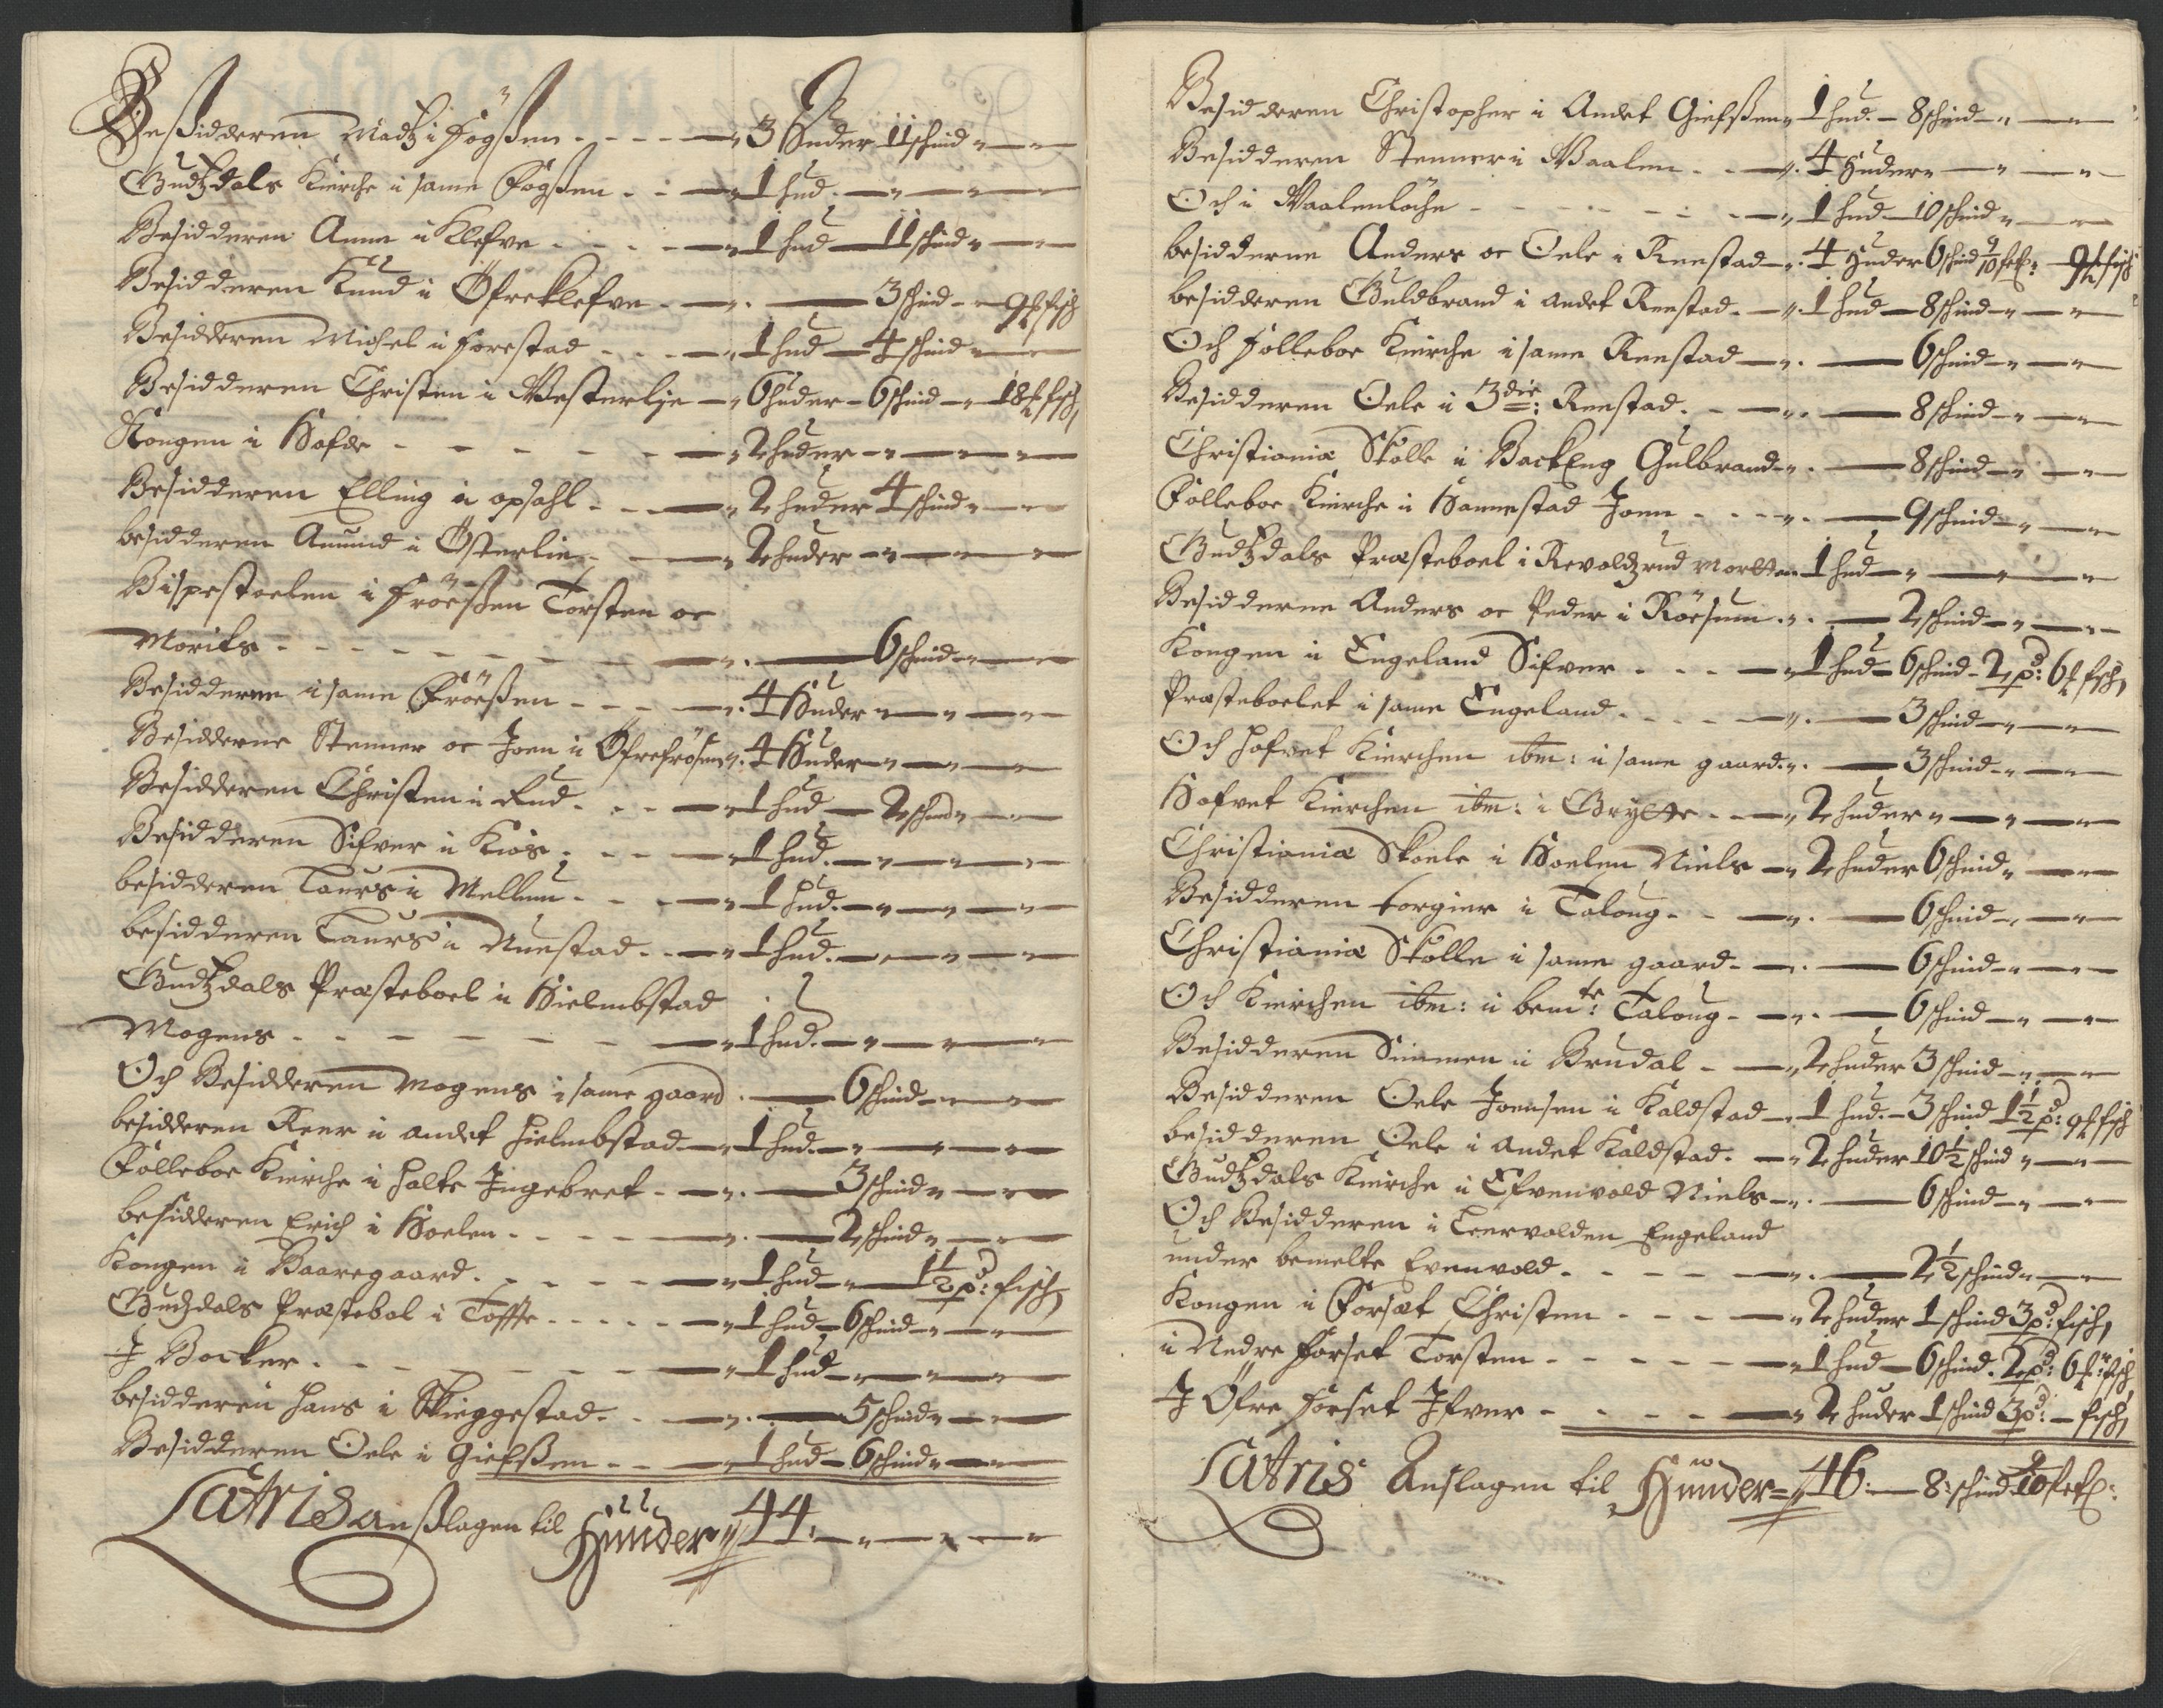 Besidderen Madtz i Fogßen - - - - 3 Huder 11 schind
Gudtzdals Kierche i same Fogßen - - 1 hud
Besidderen Anne i Klefve - - - 1 hud 11 schind
Besidderen Knud i Öfreklefve - - 3 schind - 9 ℔ fisch
Besidderen Michel i Forestad - - - 1 hud 4 schind
Besidderen Christen i Vesterlje - 6 huder - 6 schind - 18 ℔ fisch
Kongen i Hofde - - - - 2 huder
Besidderen Elling i opsahl - - 2 huder 4 schind
besidderen Amund i Österlie - 2 huder
Bispestoelen i Fröeßen Torsten oc
Morits - - - - - - 6 schind
Besidderne i same Fröeßen - - - 4 Huder
Besidderne Stenner oc Joen i Öfrefrösen 4 Huder
Besidderen Christen i Rud - - - 1 hud - 2 schind
Besidderen Sifver i Kiös - - - 1 hud
besidderen Laurs i Mellum - - - 1 hud
besidderen Laurs i Nustad - - 1 hud
Gudtzdals Præsteboel i Hielmbstad
Mogens - - - - - - 1 hud
Och Besidderen Mogens i same gaard - 6 schind
besidderen Reer i andet Hielmbstad - 1 hud
Folleboe Kierche i Holte Ingebret - - 3 schind
besidderen Erich i Hoelen - - - - 2 schind
Kongen i Baaregaard - - - - - 1 hud - 1½ pd: fisch
Gudzdals Præstebol i Toffte - - - - - 1 hud - 6 schind
I Bocker - - - - - - 1 hud
besidderen Hans i Skieggestad - - 5 schind
Besidderen Oele i Giefßen - - - 1 hud - 6 schind
Latris anßlagen til Huuder 44
Besidderen Christopher i Andet Giefßen 1 hud - 8 schind
Besidderen Stenner i Vaalen - - 4 Huder
Och i Vaalenløche - - - - - - 1 hud - 10 schind
besidderne Anders oc Oele i Reestad 4 Huder 6 schind 9/10 fef: 9 ℔ fisch
besidderen Guldbrand i andet Reestad - 1 hud - 8 schind
Och Folleboe Kierche i same Reestad - 6 schind
Besidderen Oele i 3die: Reestad - - 8 schind
Christiania Skolle i BackEng Gulbrand - 8 schind
Folleboe Kierche i Hannestad Joen - - - 9 schind
Gudtzdals Præsteboel i Revoldzrud Morten 1 hud
Besidderne Anders oc Peder i Röesum - 2 schind
Kongen i Engeland Sifver - - - 1 hud - 6 schind - 2 pd: 6 ℔ fisch
Præsteboelet i same Engeland - - - - 3 schind
Och hofvet Kierchen ibm: i same gaard - 3 schind
Hofvet Kierchen ibm: i Grytte - - 2 huder
Christiania Skoele i Hoelen Niels - 2 huder 6 schind
Besidderen torgier i Taloug - - 6 schind
Christiania Skolle i same gaard - 6 schind
Och Kierchen ibm: i bemte: Taloug - 6 schind
Besidderen Simmen i Brudal - 2 huder 3 schind
Besidderen Oele Joensen i Kaldstad - 1 hud - 3 schind 1½ pd: 9 ℔ fisch
besidderen Oele i andet Kaldstad - 2 huder 10½ schind
Gudtzdals Kierche i Efvenvold Niels - 6 schind
Och Besidderen i Leervolden Engeland
under bemelte Evenvold - - - - 2½ schind
Kongen i Forset Christen - - - - 2 huder 1 schind 3 pd: fisch
i Nedre Forset Torsten - - - - 1 hud - 6 schind - 2 pd: 6 ℔ fisch
I Öfre Forset Ifver - - - - 2 huder 1 schind 3 pd: - fisch
Latris Anslagen til Huuder 46: - 8: schind 9/10 fef: